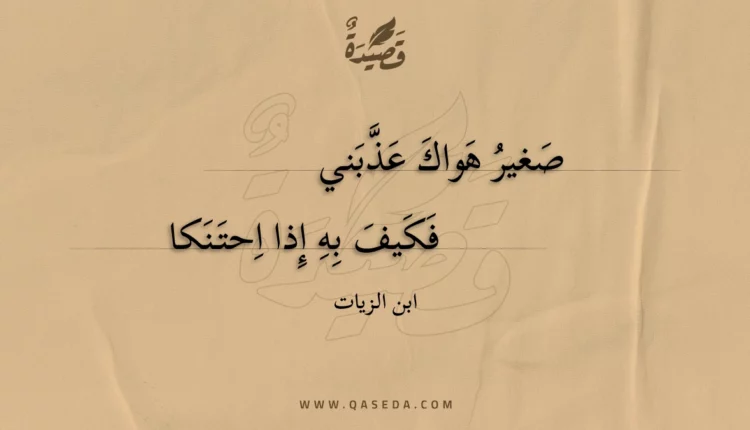 قَصِيدَةٌ
صَغيرُ هَواكَ عَذَّبَني
فَكَيفَ بِهِ إِذا اِحتَنَكا
ابن الزيات
WWW.QASEDA.COM